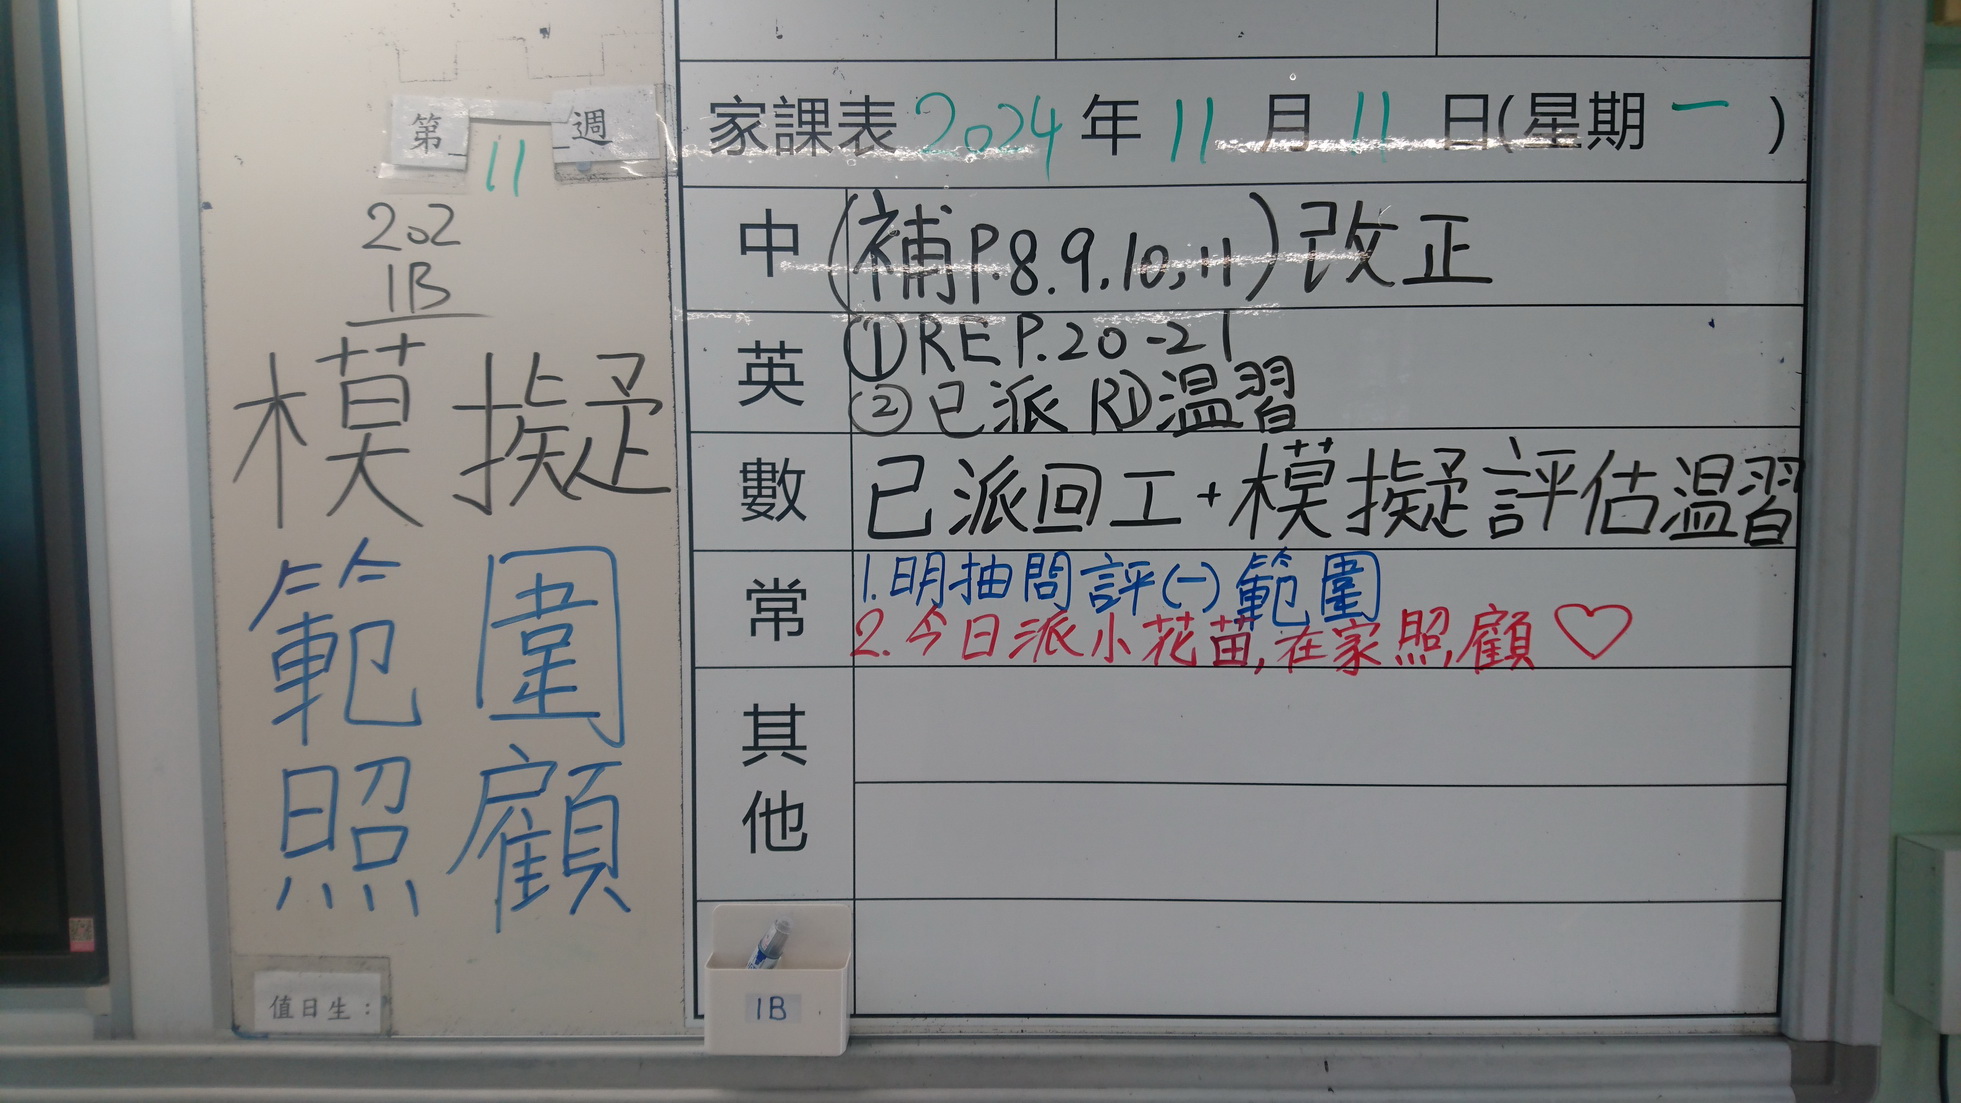 第 11 週
202
1B
模擬
範圍
照顧
值日生：
家課表 2024 年 11 月 11 日(星期一)
中 (補P.8.9.10,11)改正
英 ①RE P.20-21
②已派RD温習
數 已派回工+模擬評估温習
常 1.明抽問評(一)範圍
2.今日派小花苗,在家照顧♡
其他
1B